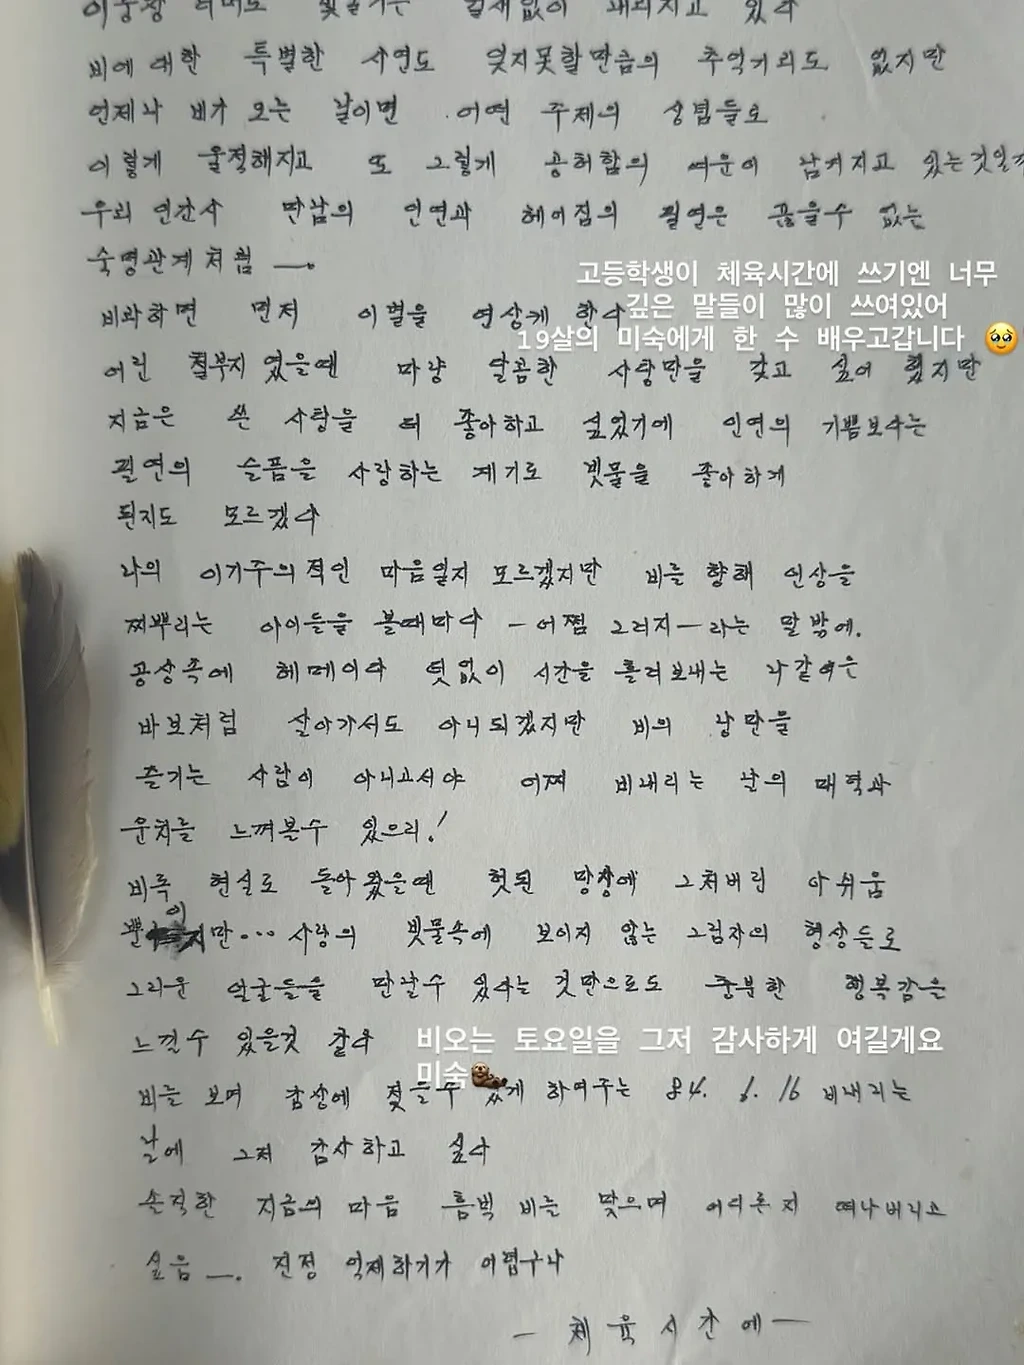 빗줄기는 걸새없이 내리지고 있다
비에 대한 특별한 사연도 잊지못할만큼의 추억거리도 없지만
언제나 비가 오는 날이면 어떤 주제의 상념들로
이렇게 울적해지고 또 그렇게 공허함의 여운이 남겨지고 있는것일까
우리 인간사 만남의 인연과 헤어짐의 필연은 끊을수 없는
숙명관계처럼 —.
고등학생이 체육시간에 쓰기엔 너무
깊은 말들이 많이 쓰여있어
19살의 미숙에게 한 수 배우고갑니다 🥹
비라하면 먼저 이별을 연상케 한다
어린 철부지 였을땐 마냥 달콤한 사탕만을 갖고 싶어 했지만
지금은 쓴 사탕을 더 좋아하고 싶었기에 인연의 기쁨보다는
필연의 슬픔을 사랑하는 계기로 빗물을 좋아하게
된지도 모르겠다
나의 이기주의적인 마음일지 모르겠지만 비를 향해 인상을
찌뿌리는 아이들을 볼때마다 — 어쩜 그러지 — 라는 말밖에.
공상속에 헤메이다 덧없이 시간을 흘려보내는 나같은
바보처럼 살아가서도 아니되겠지만 비의 낭만을
즐기는 사람이 아니고서야 어찌 비내리는 날의 매력과
운치를 느껴볼수 있으리!
비록 현실로 돌아왔을땐 헛된 망상에 그쳐버린 아쉬움
뿐이지만... 사랑의 빗물속에 보이지 않는 그림자의 형상들로
그리운 얼굴들을 만날수 있다는 것만으로도 충분한 행복감을
느낄수 있을것 같다
비오는 토요일을 그저 감사하게 여길게요
미숙🦦
비를 보며 감상에 젖을수 있게 하여주는 84. 6. 16 비내리는
날에 그저 감사하고 싶다
솔직한 지금의 마음 흠뻑 비를 맞으며 어디론지 떠나버리고
싶음 —. 진정 억제하기가 어렵구나
— 체육시간에 —